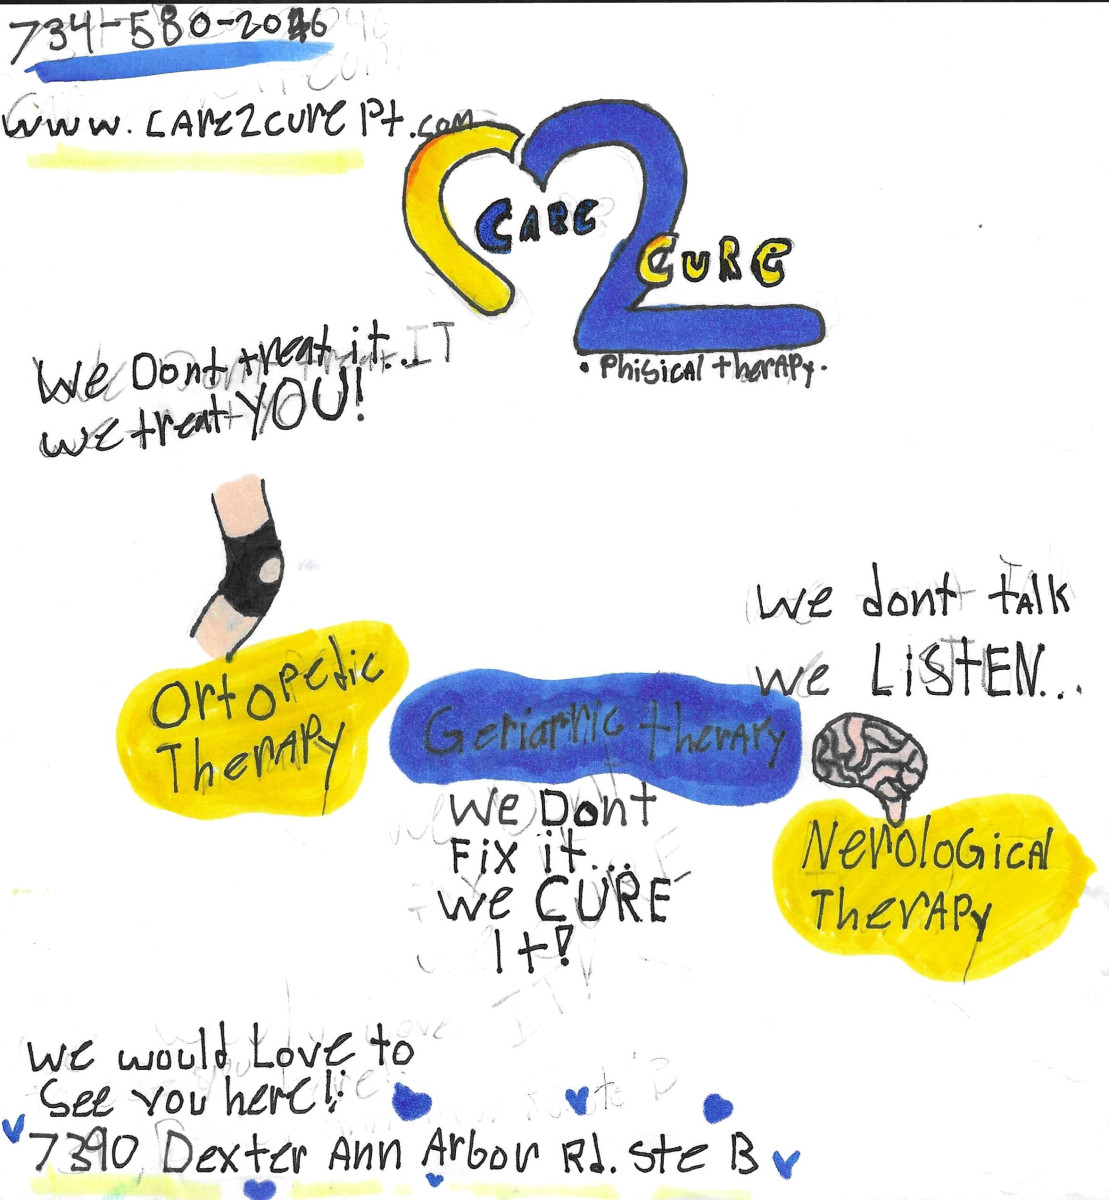 734-580-2046
www.CAre2curePt.com
CARE
2
CURE
• Phisical therapy •
We Dont treat it...
we treat YOU!
we dont talk
we LiStEN...
Ortopedic
TherAPy
Geriatric therAPy
Nerological
TherAPy
We Dont
Fix it...
we CURE
It!
We would Love to
See you here!!
7390 Dexter Ann Arbor Rd. Ste B